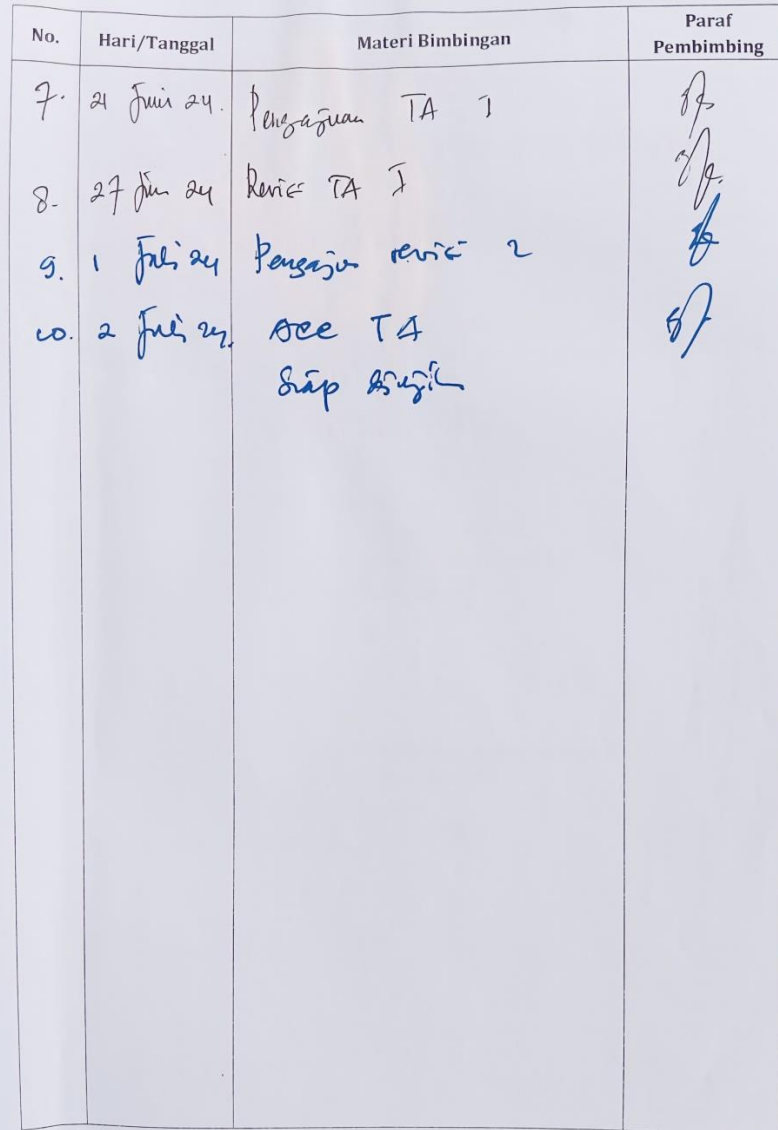 No. Hari/Tanggal Materi Bimbingan Paraf Pembimbing
7. 21 Juni 24. Pengajuan TA I
8. 27 Jun 24 Revisi TA I
9. 1 Juli 24 Pengajuan revisi 2
10. 2 Juli 24. ACC TA
Siap diuji